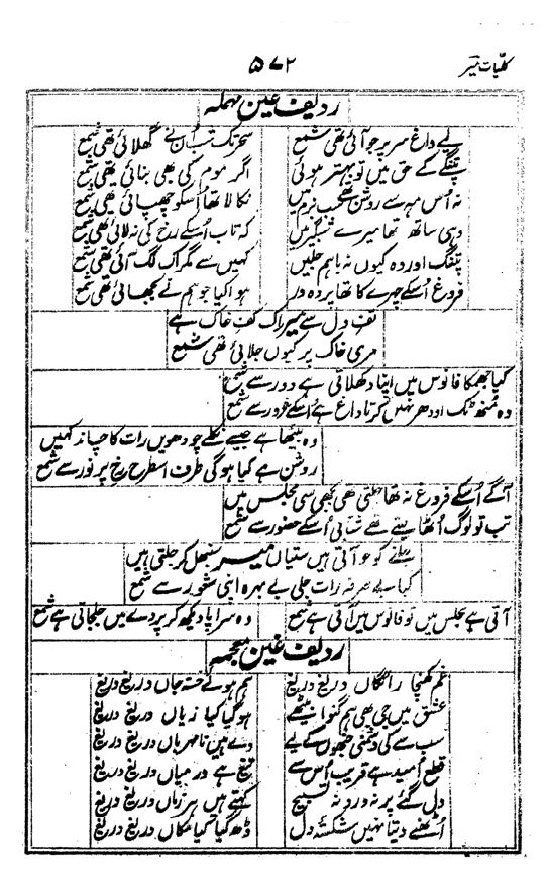 کلیات میر ۵۷۲
ردیف عین مہملہ
لیے داغ سر پر جو آئی تھی شمع سحر تک تب ان نے گھلائی تھی شمع
پتنگے کے حق میں تو بہتر ہوئی اگر موم کی بھی بنائی تھی شمع
نہ اس مہ سے روشن تھی شب بزم میں نکالا تھا اسکو چھپائی تھی شمع
وہی ساتھ تھا میرے شب گیر میں کہ تاب اسکے رخ کی نہ لائی تھی شمع
پتنگ اور وہ کیوں نہ باہم جلیں کہیں سے مگر اک لگ آئی تھی شمع
فروغ اسکے چہرے کا تھا پردہ در ہوا کیا جو ہم نے بجھائی تھی شمع
تف دل سے میر اک کف خاک ہے
مری خاک پر کیوں جلائی تھی شمع
کیا جھمکا فانوس میں اپنا دکھلاتی ہے دور سے شمع
وہ منھ ٹک اودھر نہیں کرتا داغ ہے اسکے غرور سے شمع
وہ بیٹھا ہے جیسے نکلے چودھویں رات کا چاند کہیں
روشن ہے کیا ہوگی طرف اسطرح رخ پر نور سے شمع
آگے اسکے فروغ نہ تھا جلتی تھی بجھی سی مجلس میں
تب تو لوگ اٹھا لیتے تھے شتابی اسکے حضور سے شمع
جلنے کو جو آتی ہیں ستیاں میر سنبھل کر جلتی ہیں
کیا بے صرفہ رات جلی بے بہرہ اپنی شعور سے شمع
آتی ہے مجلس میں تو فانوس میں آتی ہے شمع وہ سراپا دیکھ کر پردے میں جلجاتی ہے شمع
ردیف غین معجمہ
غم کھنچا رائگاں دریغ دریغ ہم ہوئے خستہ جاں دریغ دریغ
عشق میں جی بھی ہم گنوا بیٹھے ہو گیا کیا زیاں دریغ دریغ
سب سے کی دشمنی جنھوں کے لیے وے ہیں نامہرباں دریغ دریغ
قطع امید ہے قریب اس سے تیغ ہے درمیاں دریغ دریغ
دل گئے پر نہ ورد نہ تسبیح کہتے ہیں ہر زباں دریغ دریغ
اٹھنے دیتا نہیں شکستہ دل ڈھ گیا کیا مکاں دریغ دریغ